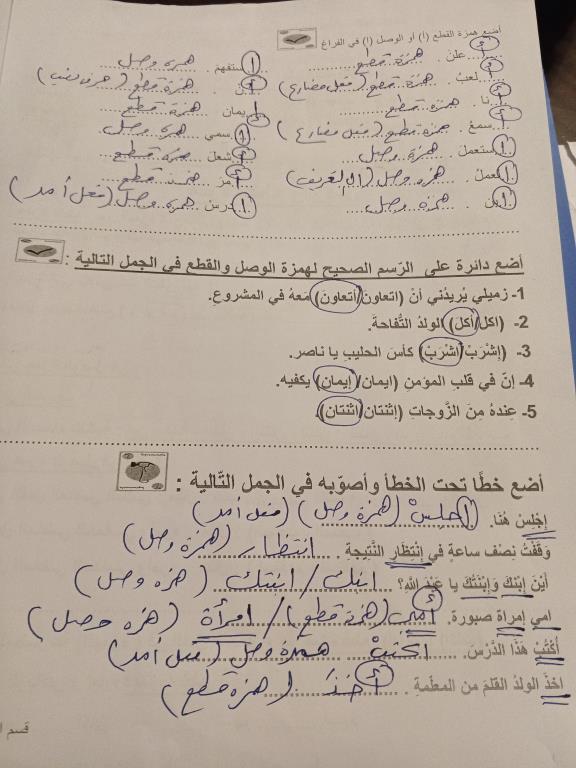 أضع همزة القطع (أ) أو الوصل (ا) في الفراغ
أ علن . همزة قطع
ا ستفهم . همزه وصل
أ لعب . همزة قطع (فعل مضارع)
همزة قطع (حرف نصب)
أ نا . همزه قطع
إ يمان همزة قطع
أ سمع . همزة قطع (فعل مضارع)
همزه وصل
ا ستعمل . همزة وصل
أ شعل همزه قطع
همزه وصل (ال التعريف)
همزه قطع
ا بن . همزه وصل
ا درس . همزه وصل (فعل أمر)
أضع دائرة على الرّسم الصحيح لهمزة الوصل والقطع في الجمل التالية :
1- زميلي يُريدُني أنْ (اتعاونَ/أتعاونَ) مَعهُ في المشروعِ.
2- (اكل/أكلَ) الولدُ التُّفاحةَ.
3- (إشْرَبْ/اشْرَبْ) كأسَ الحليبِ يا ناصر.
4- إنّ في قلبِ المؤمنِ (ايمان/إيمان) يكفيه.
5- عِندهُ مِنَ الزَّوجاتِ (إثنتان/اثنتان).
أضع خطًا تحت الخطأ وأصوّبه في الجمل التّالية :
إجْلِسْ هُنَا. اجلسْ (همزة وصل) (فعل أمر)
وَقَفْتُ نِصْف ساعةٍ في إنْتِظَارِ النَّتيجةِ . انتظار (همزة وصل)
أيْنَ إبْنكَ وَإبْنَتُكَ يا عَبْدَ اللهِ؟ ابنك / ابنتك (همزه وصل)
امي إمراة صبورة. أمي (همزة قطع) / امرأة (همزه وصل)
أُكْتُبْ هَذَا الدَّرْسَ. اكتبْ همزة وصل (فعل أمر)
اخذَ الولدُ القلمَ من المعلّمةِ . أخذَ (همزة قطع)